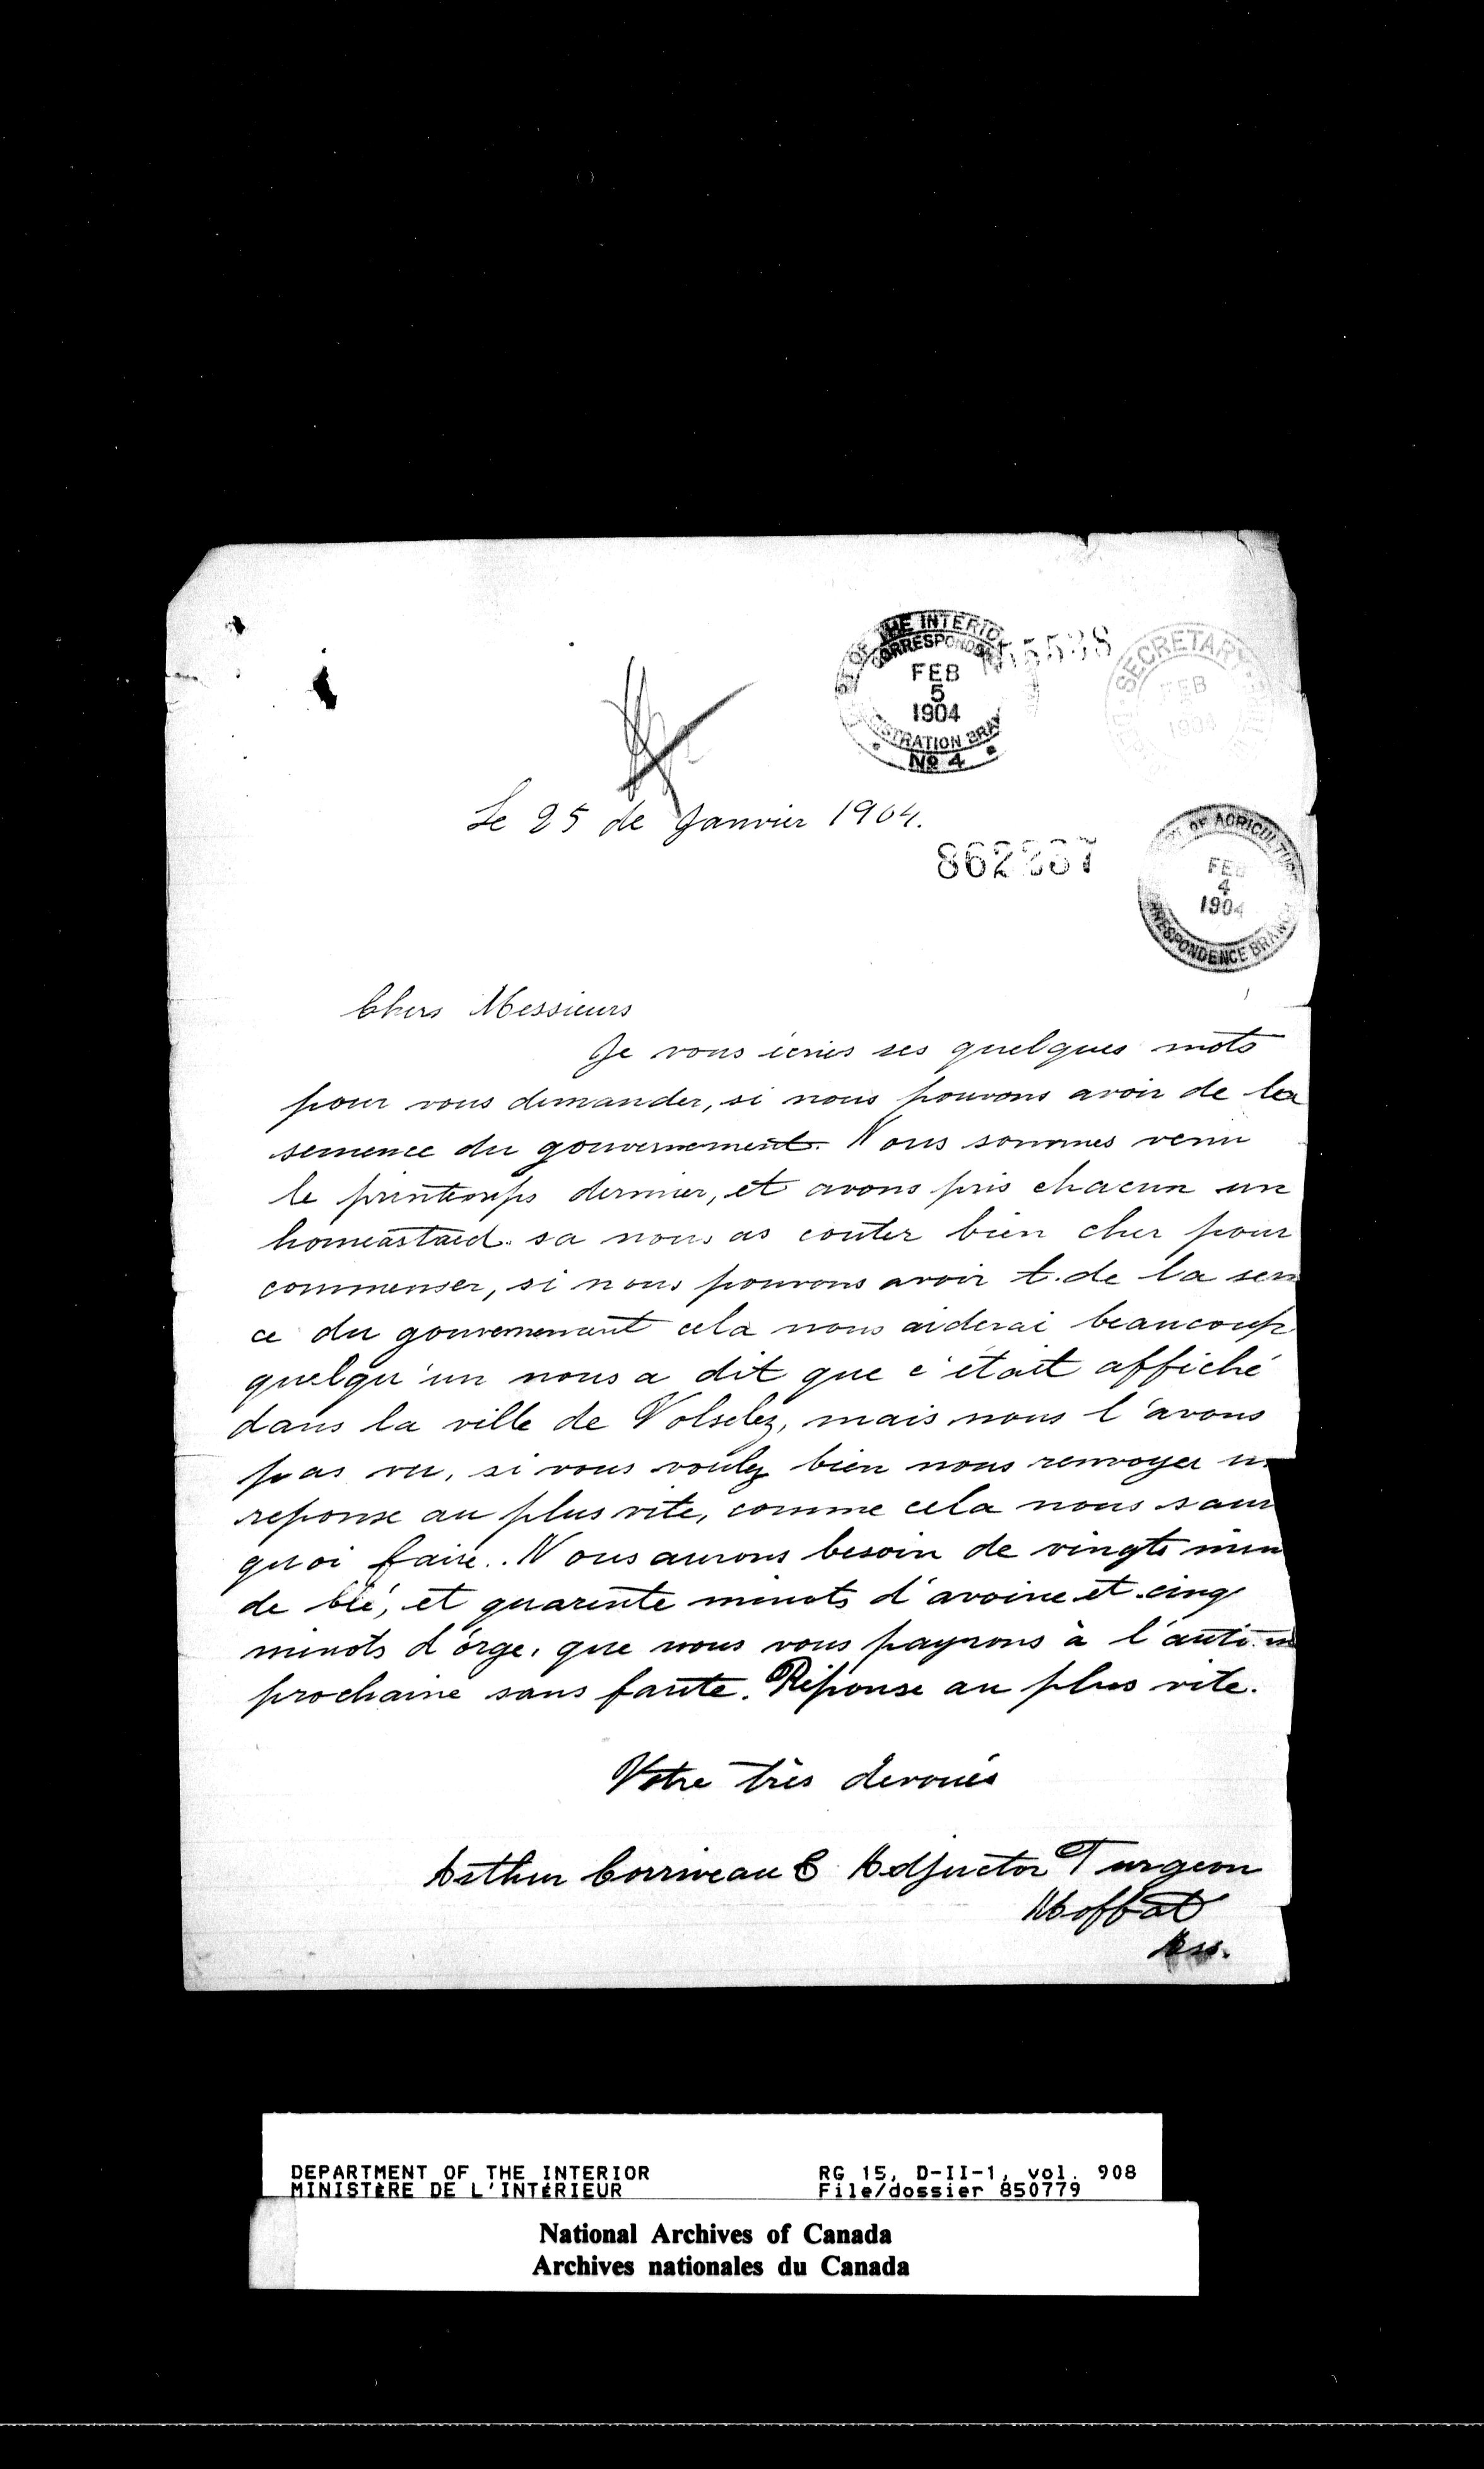 DEPT OF THE INTERIOR
CORRESPONDENCE
FEB
5
1904
REGISTRATION BRANCH
No 4
SECRETARY
FEB
1904
Le 25 de Janvier 1904.
DEPT OF AGRICULTURE
FEB
4
1904
CORRESPONDENCE BRANCH
Chers Messieurs
Je vous écries ses quelques mots
pour vous demander, si nous pouvons avoir de la
semence du gouvernement. Nous sommes venu
le printemps dernier, et avons pris chacun un
homeastaed. sa nous as couter bien cher pour
commenser, si nous pouvons avoir t. de la sem
ce du gouvernement cela nous aiderai beaucoup
quelqu'un nous a dit que c'était affiché
dans la ville de Volseley, mais nous l'avons
pas vu, si vous voulez bien nous renvoyer un
reponse au plus vite, comme cela nous saur
quoi faire.. Nous aurons besoin de vingts min
de blé, et quarente minots d'avoine et cinq
minots d'orge, que nous vous payrons à l'autom
prochaine sans faute. Réponse au plus vite.
Votre très dévoués
Arthur Corriveau & Adjuctor Turgeon
Moffat
Ass.
DEPARTMENT OF THE INTERIOR
MINISTÈRE DE L'INTÉRIEUR
RG 15, D-II-1, vol. 908
File/dossier 850779
National Archives of Canada
Archives nationales du Canada